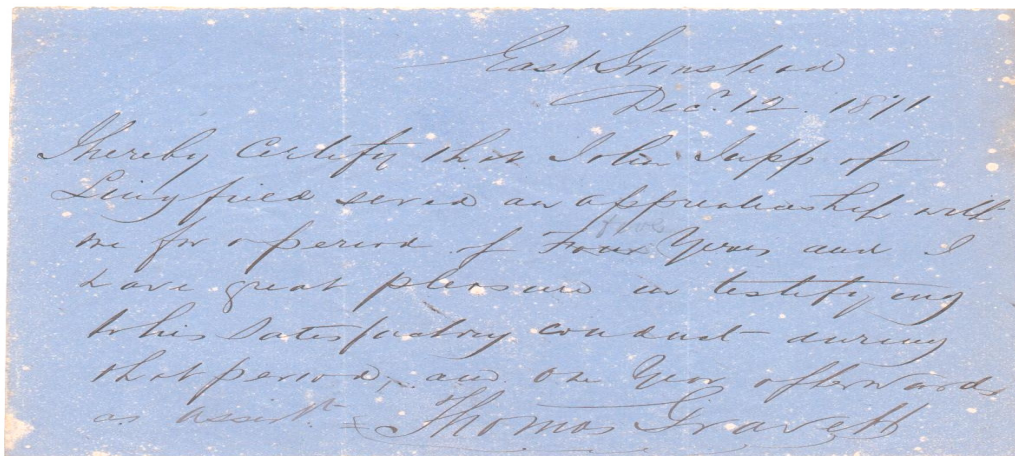 East Grinstead
Decr. 12. 1871
I hereby certify that John Jupp of
Lingfield served an apprenticeship with
me for a period of Four Years and I
have great pleasure in testifying
to his satisfactory conduct during
that period, and one Year afterwards
as assistt. Thomas Gravett